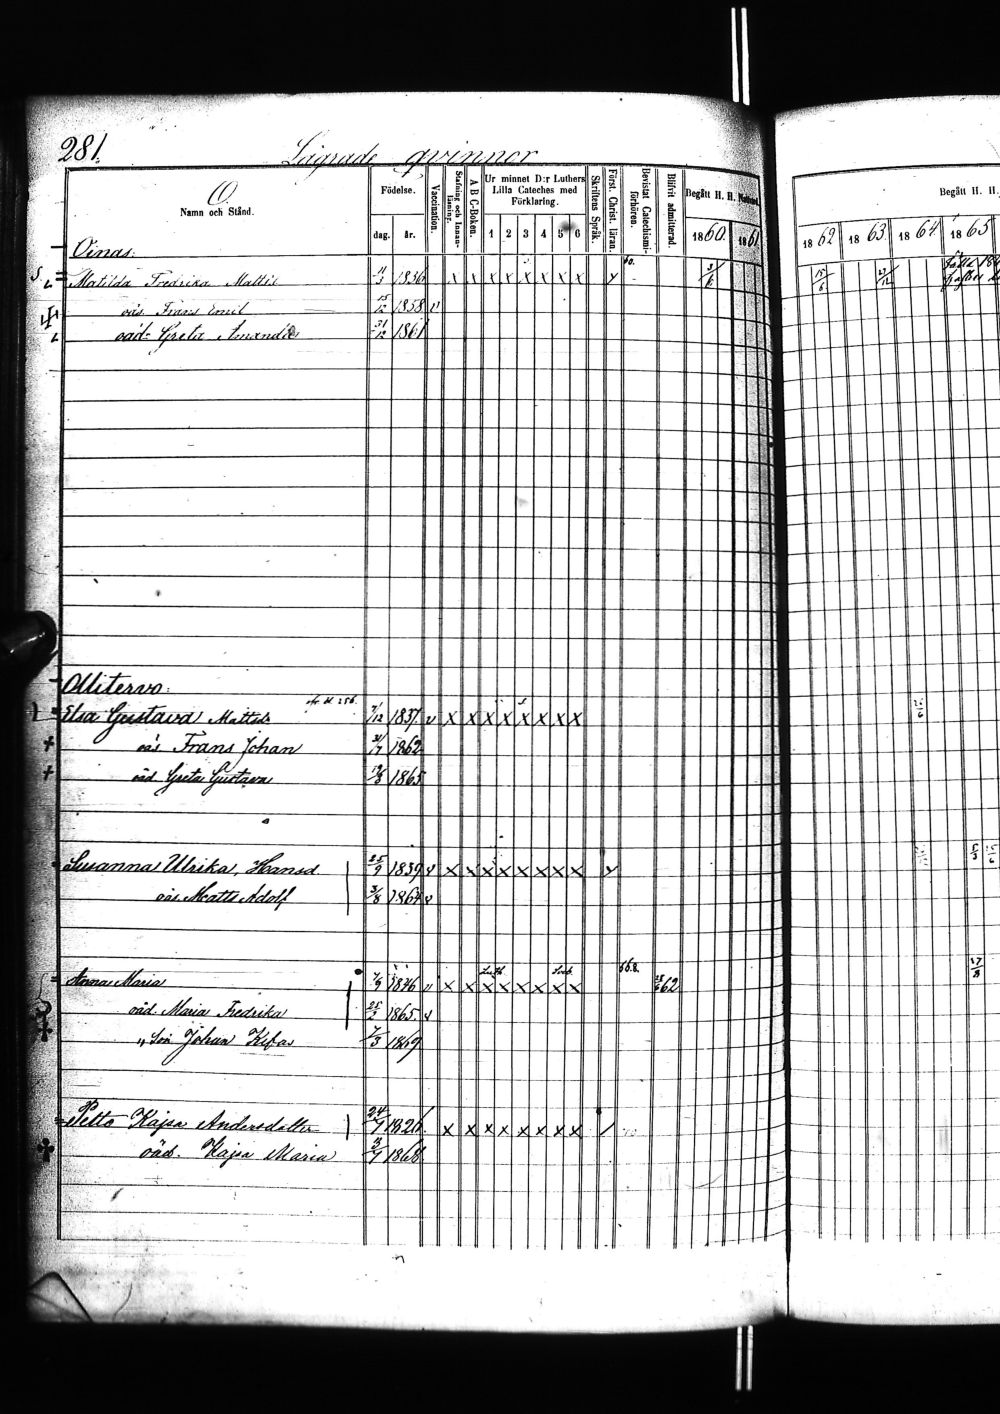 281.
Lägrade qvinnor
O.
Namn och Stånd.
Födelse.
dag.
år.
Vaccination.
Stafning och Innanläsning.
A B C-Boken.
Ur minnet D:r Luthers Lilla Cateches med Förklaring.
1 2 3 4 5 6
Skriftens Språk.
Först. Christ. läran.
Bevistat Catechismi-förhören.
Blifvit admitterad.
Begått H. H. Nattvard.
1860. 1861
Begått H. H.
1862 1863. 1864 1865
Oinas.
Matilda Fredrika Mattsd 11/3 1836 x x x x x x x x y
oäs. Frans Emil 15/12 1858 v
oäd. Greta Amanda 31/12 1861
Ollitervo:
Elsa Gustava Mattsdr 1837. v x x x x x x x x
oäs Frans Johan 31/7 1862
oäd Greta Gustava 1865
Susanna Ulrika, Hansd 25/9 1839 v x x x x x x x x y
oäs. Matts Adolf 3/8 1864 v
Luth. Sveb. 66.8.
Anna Maria 7/9 1846 v x x x x x x x x 62
oäd. Maria Fredrika 25/2 1865. v
„ Son Johan Kefas 7/3 1869
Petto Kajsa Andersdotter 24/7 1826. x x x x x x x x /
oäd. Kajsa Maria 3/7 1868